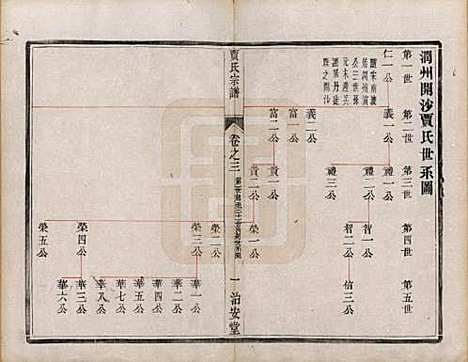 潤州開沙賈氏世系圖
第一世
第二世
第三世
第四世
第五世
仁一公
義一公
義二公
富二公
富一公
禮一公
禮二公
貴一公
貴二公
智一公
智二公
榮一公
榮二公
榮三公
榮四公
榮五公
信三公
華一公
華二公
華四公
華五公
華七公
華八公
華三公
華六公
賈氏宗譜
卷之三
一
治安堂